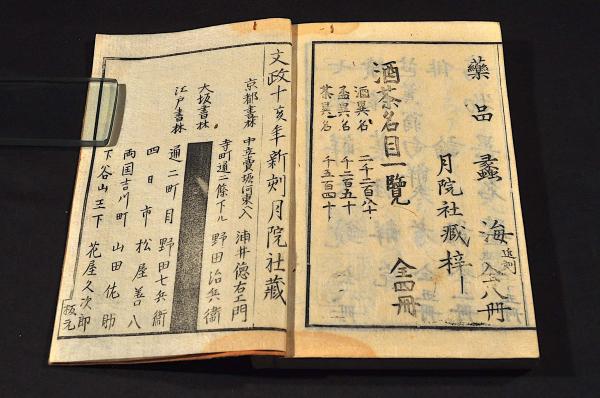 藥品蠡海 近刻 全八冊
月院社藏梓
酒茶名目一覧
酒異名 二千二百八十
盃異名 千二百五十
茶異名 千五百四十
全四冊
文政十亥年新刻月院社藏
京都書林 中立賣堀何東入 浦井德右エ門
寺町通二條下ル 野田治兵衞
大坂書林
江戸書林 通二町目 野田七兵衞
四日市 松屋善八
両国吉川町 山田佐助
下谷山王下 花屋久次郎
板元